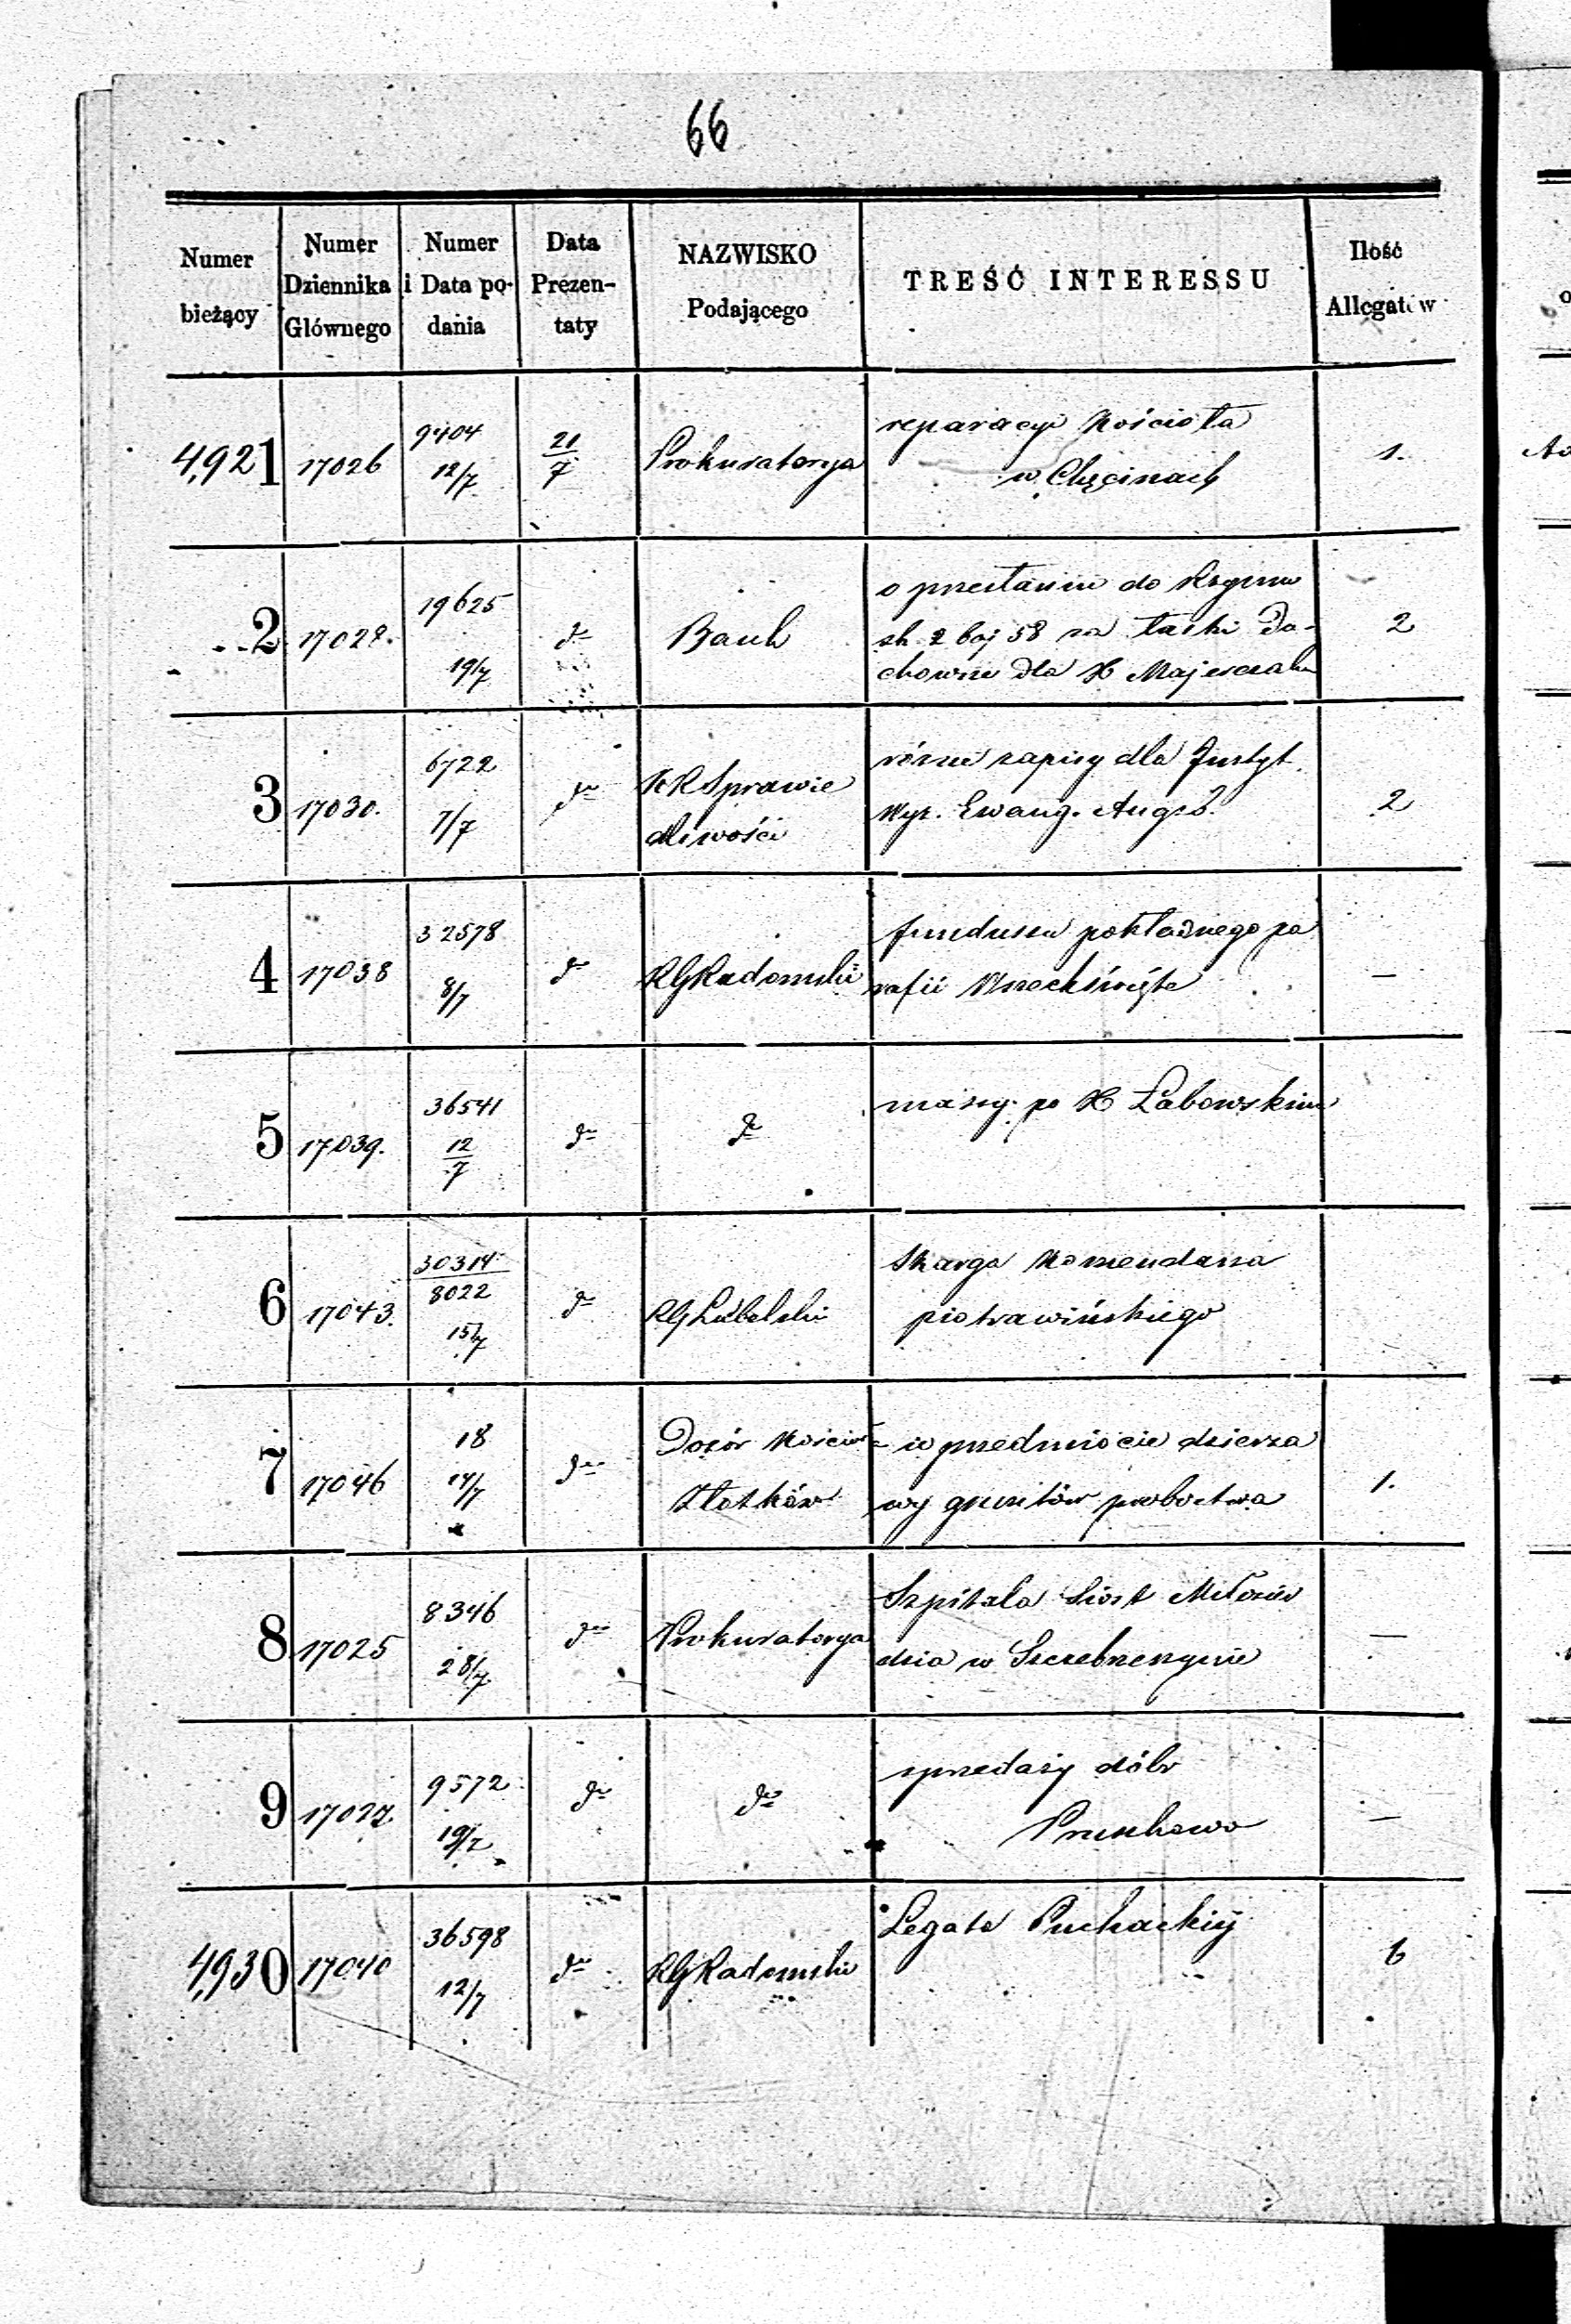 66
Numer bieżący
Numer Dziennika Głównego
Numer i Data podania
Data Prezentaty
NAZWISKO Podającego
TREŚĆ INTERESSU
Ilość Allegatów
4,921 17026 9404 12/7 21/7 Prokuratorya reparacyi Kościoła 1.
w Chęcinach
2 17028. 19625 19/7 do Bank o przesłaniu do Rzymu 2
sk. 2 boj 58 za łaski Du-
chowne dla X
3 17030. 6722 7/7 do KRSprawie różne zapisy dla Instyt. 2
dliwości Wyz. Ewang. Augsb.
4 17038 32578 8/7 do RGRadomski funduszu pokładnego pa —
rafii Wszechświęte
5 17039. 36541 12/7 do do massy po X Łabowskim
6 17043. 30314 8022 15/7 do RGLubelski Skarga Komendarza
piotrawińskiego
7 17046 18 14/7 do Dozór Kościoł w przedmiocie dzierża 1.
Złotków wy gruntów probostwa
8 17025 8346 28/7 do Prokuratorya Szpitala Siost Miłosier —
dzia w Szczebrzeszynie
9 17027. 9572 19/7 do do sprzedaży dóbr —
4,930 17040 36598 12/7 do RGRadomski Legata Puchackiy 6